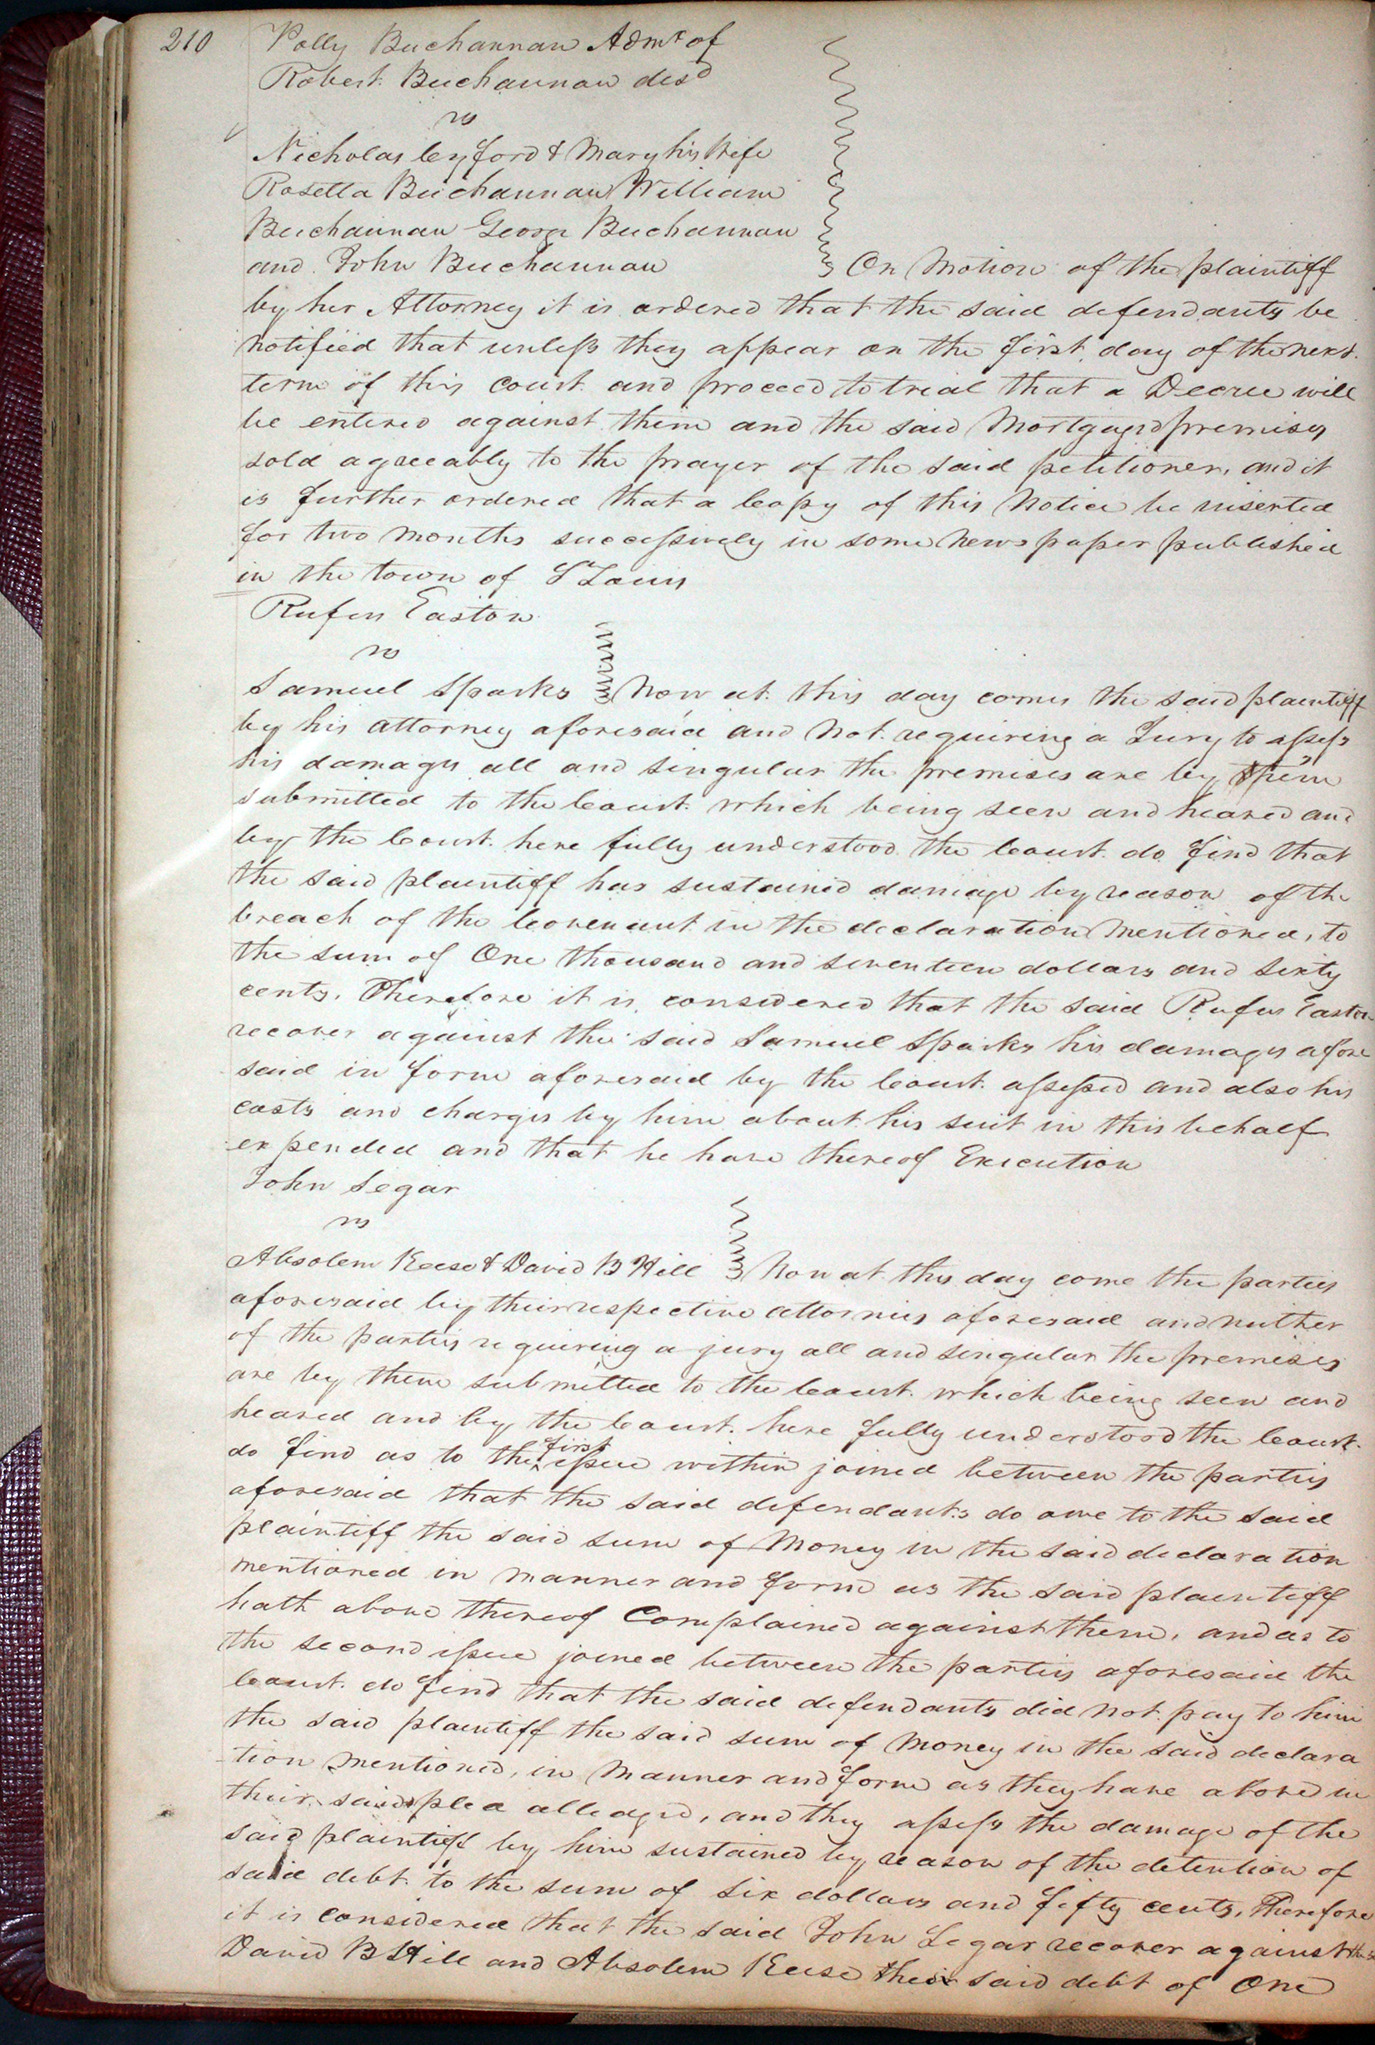 210
Polly Buchannan Admx of
Robert Buchannan decd
vs
Nicholas Cyford & Mary his Wife
Rosetta Buchannan William
Buchannan George Buchannan
and John Buchannan On Motion of the plaintiff
by her Attorney it is ordered that the said defendants be
notified that unless they appear on the first day of the next
term of this court and proceed to trial that a Decree will
be entered against them and the said Mortgaged premises
sold agreeably to the prayer of the said petitioner, and it
is further ordered that a Copy of this Notice be inserted
for two months successively in some News paper published
in the town of St Louis
Rufus Easton
vs
Samuel Sparks Now at this day comes the said plaintiff
by his attorney aforesaid and Not requiring a Jury to assess
his damages all and singular the premises are by them
submitted to the Court which being seen and heared and
by the Court here fully understood the Court do find that
the said plaintiff has sustained damage by reason of the
breach of the Covenant in the declaration Mentioned, to
the sum of One thousand and seventeen dollars and sixty
cents. Therefore it is considered that the said Rufus Easton
recover against the said Samuel Sparks his damages afore
said in form aforesaid by the Court assessed and also his
costs and charges by him about his suit in this behalf
expended and that he have thereof Execution
John Segar
vs
Absolem Keese & David B Hill Now at this day come the parties
aforesaid by their respective attornies aforesaid and neither
of the parties requiring a jury all and singular the premises
are by them submitted to the Court which being seen and
heared and by the Court here fully understood the Court
do find as to the first issue within joined between the parties
aforesaid that the said defendants do owe to the said
plaintiff the said sum of Money in the said declaration
mentioned in manner and form as the said plaintiff
hath above thereof Complained against them, and as to
the second issue joined between the parties aforesaid the
Court do find that the said defendants did Not pay to him
the said plaintiff the said sum of Money in the said declara
tion mentioned, in Manner and form as they have above in
their said plea alledged, and they assess the damage of the
said plaintiff by him sustained by reason of the detention of
said debt to the sum of Six dollars and fifty cents, Therefore
it is considered that the said John Segar recover against the
David B Hill and Absolem Keese their said debt of One